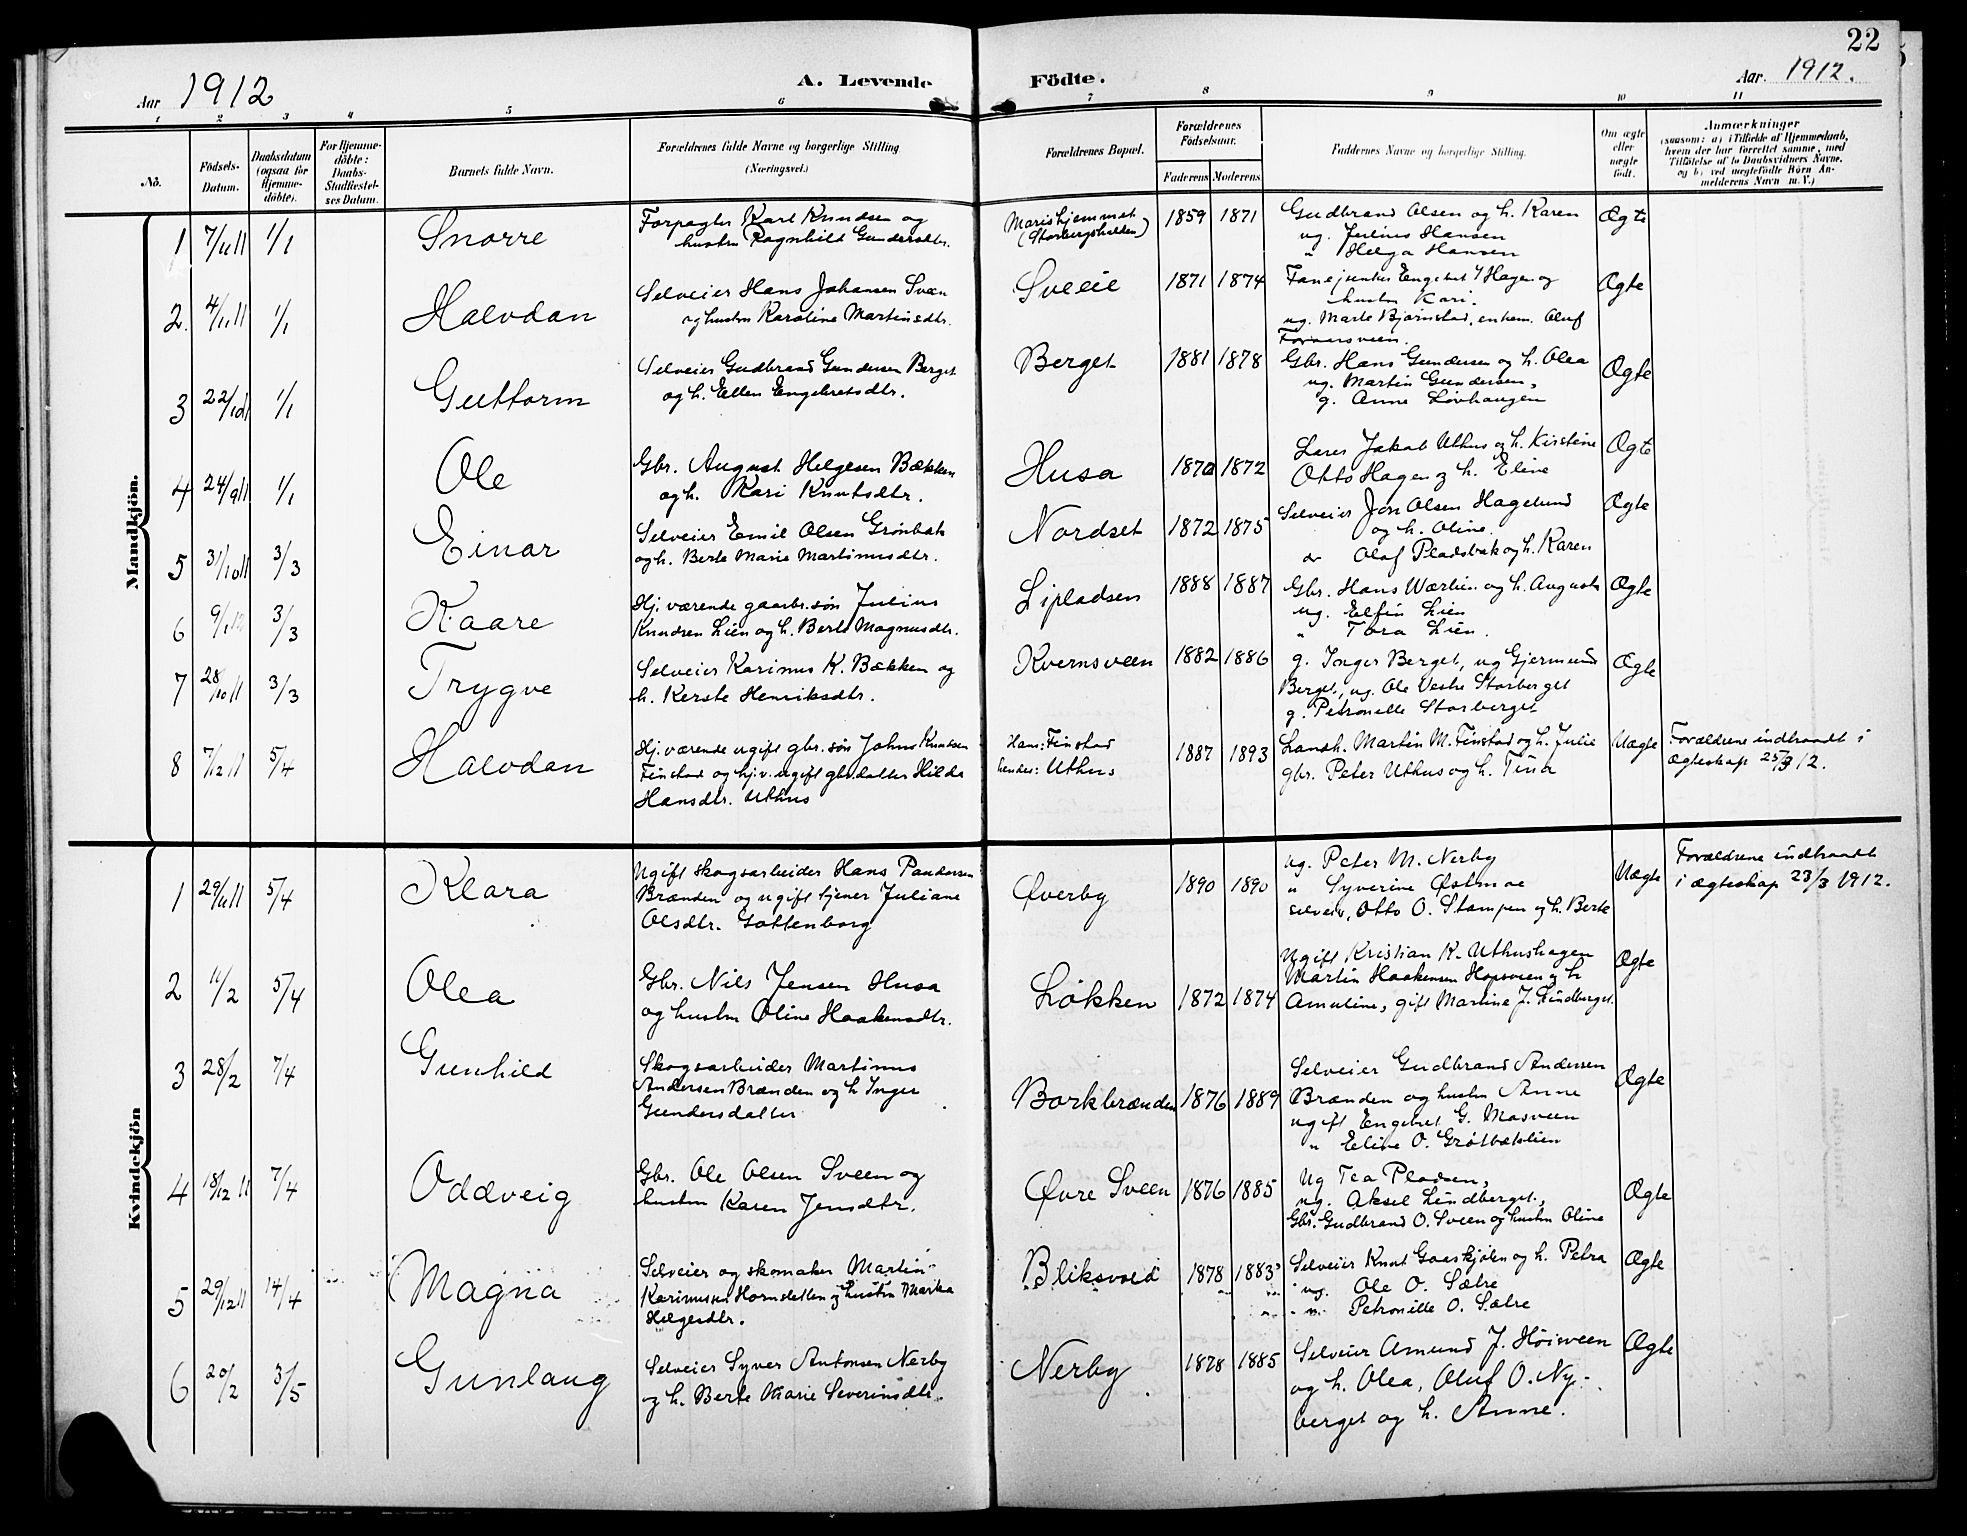 22
Aar 1912
A. Levende Födte.
Aar. 1912.
1 2 3 4 5 6 7 8 9 10 11
No.
Födsels-Datum.
Daabsdatum (ogsaa for Hjemme-döbte).
For Hjemme-döbte: Daabs-Stadfæstel-ses Datum.
Barnets fulde Navn.
Forældrenes fulde Navne og borgerlige Stilling (Næringsvei.)
Forældrenes Bopæl.
Forældrenes Födselsaar.
Faderens Moderens
Faddernes Navne og borgerlige Stilling.
Om ægte eller uægte födt.
Anmærkninger
(saasom: a) i Tilfælde af Hjemmedaab,
hvem der har forrettet samme, med
Tilföielse af to Daabsvidners Navne,
og b) ved uægtefödte Börn An-
melderens Navn m. V.)
Mandkjön.
1 7/11 11 1/1 Snorre
Forpagter Karl Knudsen og
hustru Ragnhild Gundersdtr.
Marishjemmet
(Storbergsholden)
1859 1871
Gudbrand Olsen og h. Karen
ug. Julius Hansen
" Helga Hansen
Ægte
2. 4/11 11 1/1 Halvdan
Selveier Hans Johansen Sveen
og hustru Karoline Martinsdtr.
Sveeie
1871 1874
Fanejunker Engebret Hagen og
hustru Kari.
ug. Marte Bjørnstad, enkem. Oluf
Ægte
3 22/10 11 1/1 Guttorm
Selveier Gudbrand Gundersen Berget
og h. Ellen Engebretsdtr.
Berget
1881 1878
Gbr. Hans Gundersen og h. Olea
ug. Martin Gundersen,
g. Anne Løvhaugen
Ægte
4 24/9 11 1/1 Ole
Gbr. August Helgesen Bækken
og h. Kari Knutsdtr.
Husa
1870 1872
Lærer Jakob Uthus og h. Kirstine
Otto Hagen og h. Eline
Ægte
5 31/10 11 3/3 Einar
Selveier Emil Olsen Grønbæk
og h. Berte Marie Martinusdtr.
Nordset
1872 1875
Selveier Jon Olsen Hagelund
og h. Oline.
Olaf Pladsbak og h. Karen
Ægte
6 9/1 12 3/3 Kaare
Hj. værende gaarbr.søn Julius
Knudsen Lien og h. Berte Magnusdtr.
Lipladsen
1888 1887
Gbr. Hans Wærlien og h. Augusta
ug. Elfin Lien
" Tora Lien.
Ægte
7 28/10 11 3/3 Trygve
Selveier Karinus K. Bækken og
h. Kerste Henriksdtr.
Kvernsveen
1882 1886
g. Inger Berget, ug Gjermund
Berget, ug. Ole Vestre Storberget
g. Petronelle Storberget
Ægte
8 7/12 11 5/4 Halvdan
Hj. værende ugift gbr. søn Johns Knutsen
Finstad og hj.v. ugift gbr.datter Hilda
Hansdtr. Uthus
Hans: Finstad
hendes: Uthus
1887 1893
Landh. Martin M. Finstad og h. Julie
gbr. Peter Uthus og h. Tina
Uægte
Forældrene indtraadt i
ægteskap 25/3 12.
Kvindekjön
1 29/11 11 5/4 Klara
Ugift skogsarbeider Hans Paudersen
Brænden og ugift tjener Juliane
Olsdtr. Gottenborg
Øverby
1890 1890
ug. Peter M. Nerby
" Syverine Østmoe
selveier, Otto O. Stampen og h. Berte
Uægte
Forældrene indtraadt
i ægteskap 23/3 1912.
2 11/2 5/4 Olea
Gbr. Nils Jensen Husa
og hustru Oline Haakensdtr.
Løkken
1872 1874
Ugift Kristian K. Uthushagen
Martin Haakensen og h
Amaline, gift Martine J. Lindberget.
Ægte
3 28/2 7/4 Gunhild
Skogsarbeider Martinus
Andersen Brænden og h Inger
Gundersdatter
Borkbrænden
1876 1889
Selveier Gudbrand Andersen
Brænden og hustru Anne
ugift Engebret G. Masveen
" Eline O. Grøtbæklien
Ægte
4 18/12 11 7/4 Oddveig
Gbr. Ole Olsen Sveen og
hustru Karen Jensdtr.
Øvre Sveen
1876 1885
Ug Tea Pladsen,
ug. Aksel Lindberget,
Gbr. Gudbrand O. Sveen og hustru Oline
Ægte
5 29/12 11 14/4 Magna
Selveier og skomaker Martin
Karinusen Hornsletten og hustru Marka
Helgesdtr.
Bliksvold
1878 1883
Selveier Knut Gaaskjølen og h. Petra
ug. Ole O. Sætre
" Petronille O. Sætre
Ægte
6 20/2 3/5 Gunlaug
Selveier Syver Antonsen Nerby
og h. Berte Marie Severinsdtr.
Nerby
1878 1885
Selveier Amund J. Høisveen
og h. Olea, Oluf O. Ny-
berget og h. Anne.
Ægte